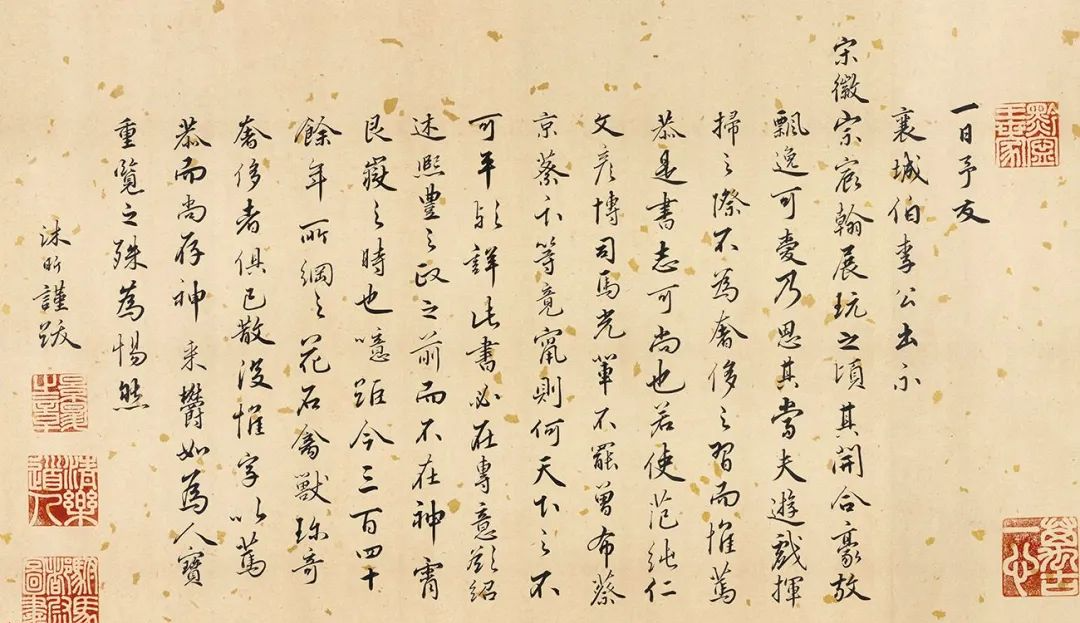 黔寧王家
萬古一心
一日予友
襄城伯李公出示
宋徽宗宸翰展玩之頃其開合豪放
飄逸可愛乃思其當夫遊戲揮
掃之際不為奢侈之習而惟篤
恭是書志可尚也若使范純仁
文彥博司馬光輩不罷曾布蔡
京蔡卞等竟竄則何天下之不
可平歟詳此書必在專意於紹
述熙豐之政之前而不在神霄
艮嶽之時也噫距今三百四十
餘年所綱之花石禽獸珎奇
奢侈者俱已散沒惟字以篤
恭而尚存神采欝如為人寶
重覽之殊為惕然
沐昕謹跋
清樂道人